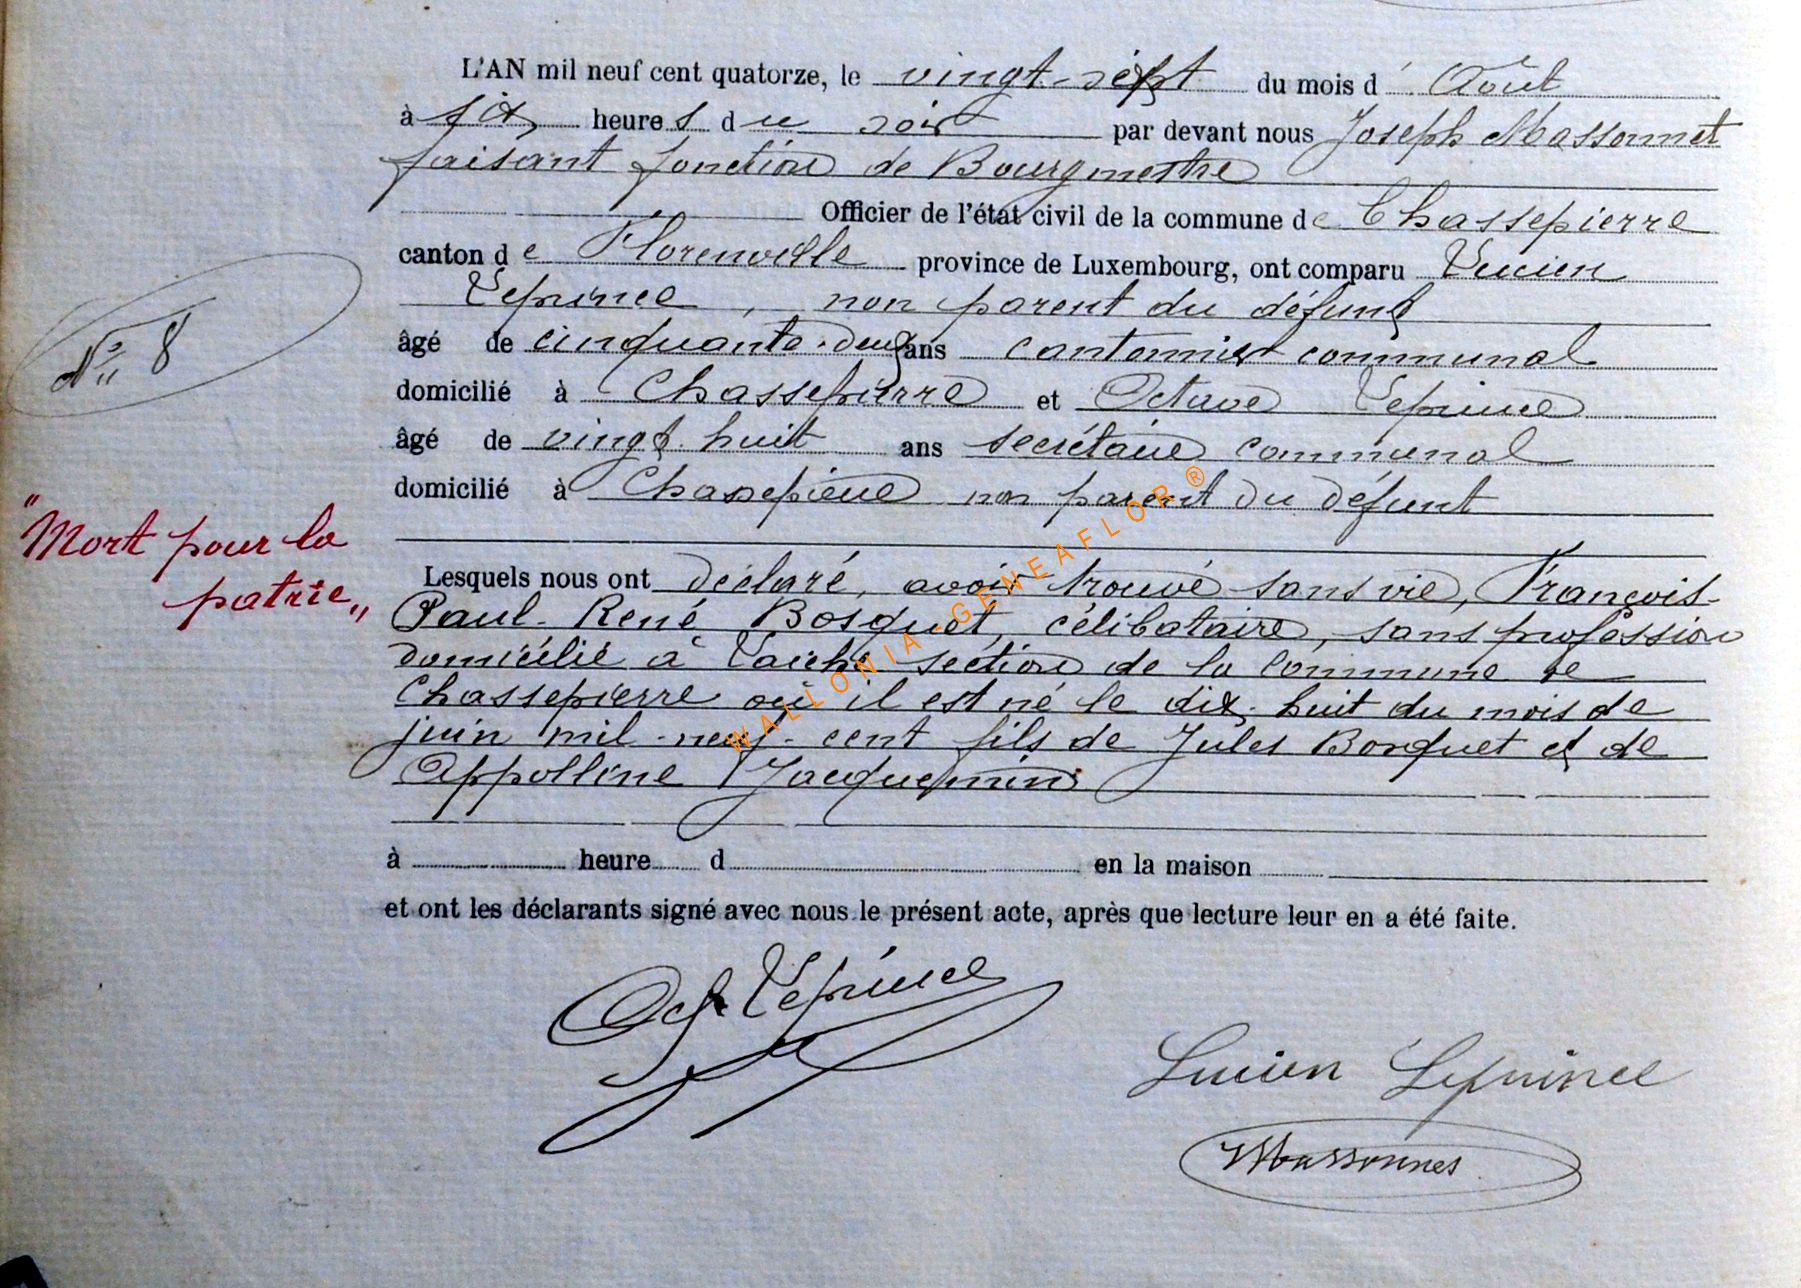 L'AN mil neuf cent quatorze, le vingt-sept du mois d' Août
à six heures du soir par devant nous Joseph Massonnet
faisant fonction de Bourgmestre
Officier de l'état civil de la commune de Chassepierre
canton de Florenville province de Luxembourg, ont comparu Lucien
Leprince, non parent du défunt
N° 8
âgé de cinquante-deux ans cantonnier communal
domicilié à Chassepierre et Octave Leprince
âgé de vingt huit ans secrétaire communal
domicilié à Chassepierre non parent du défunt
"Mort pour la
patrie"
Lesquels nous ont déclaré, avoir trouvé sans vie, François-
Paul-René Bosquet, célibataire, sans profession
domicilié à Laiche section de la commune de
Chassepierre où il est né le dix-huit du mois de
juin mil-neuf-cent fils de Jules Bosquet et de
Appolline Jacquemin
à heure d en la maison
et ont les déclarants signé avec nous le présent acte, après que lecture leur en a été faite.
Oct Leprince
Lucien Leprince
Massonnet
WALLONIA-GENEAFLOR ®